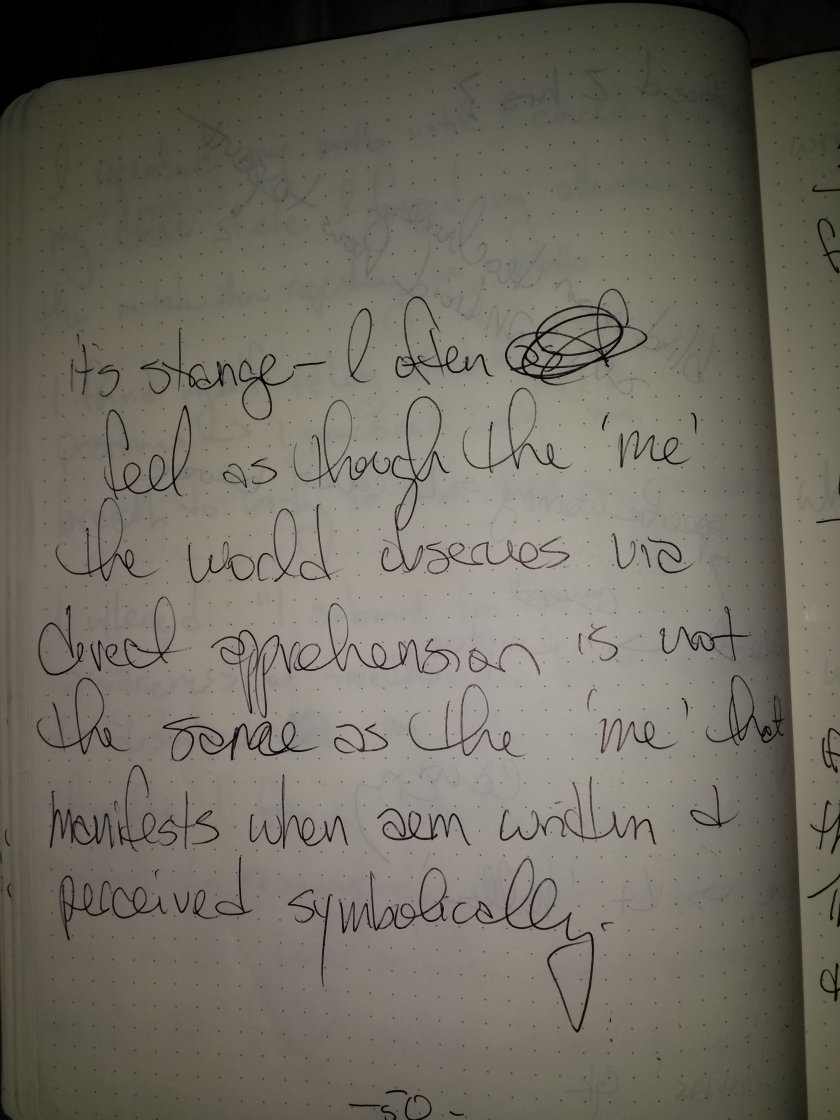 it's stange - I often
feel as though the 'me'
the world observes via
direct apprehension is not
the same as the 'me' that
manifests when written &
perceived symbolically.
-50-